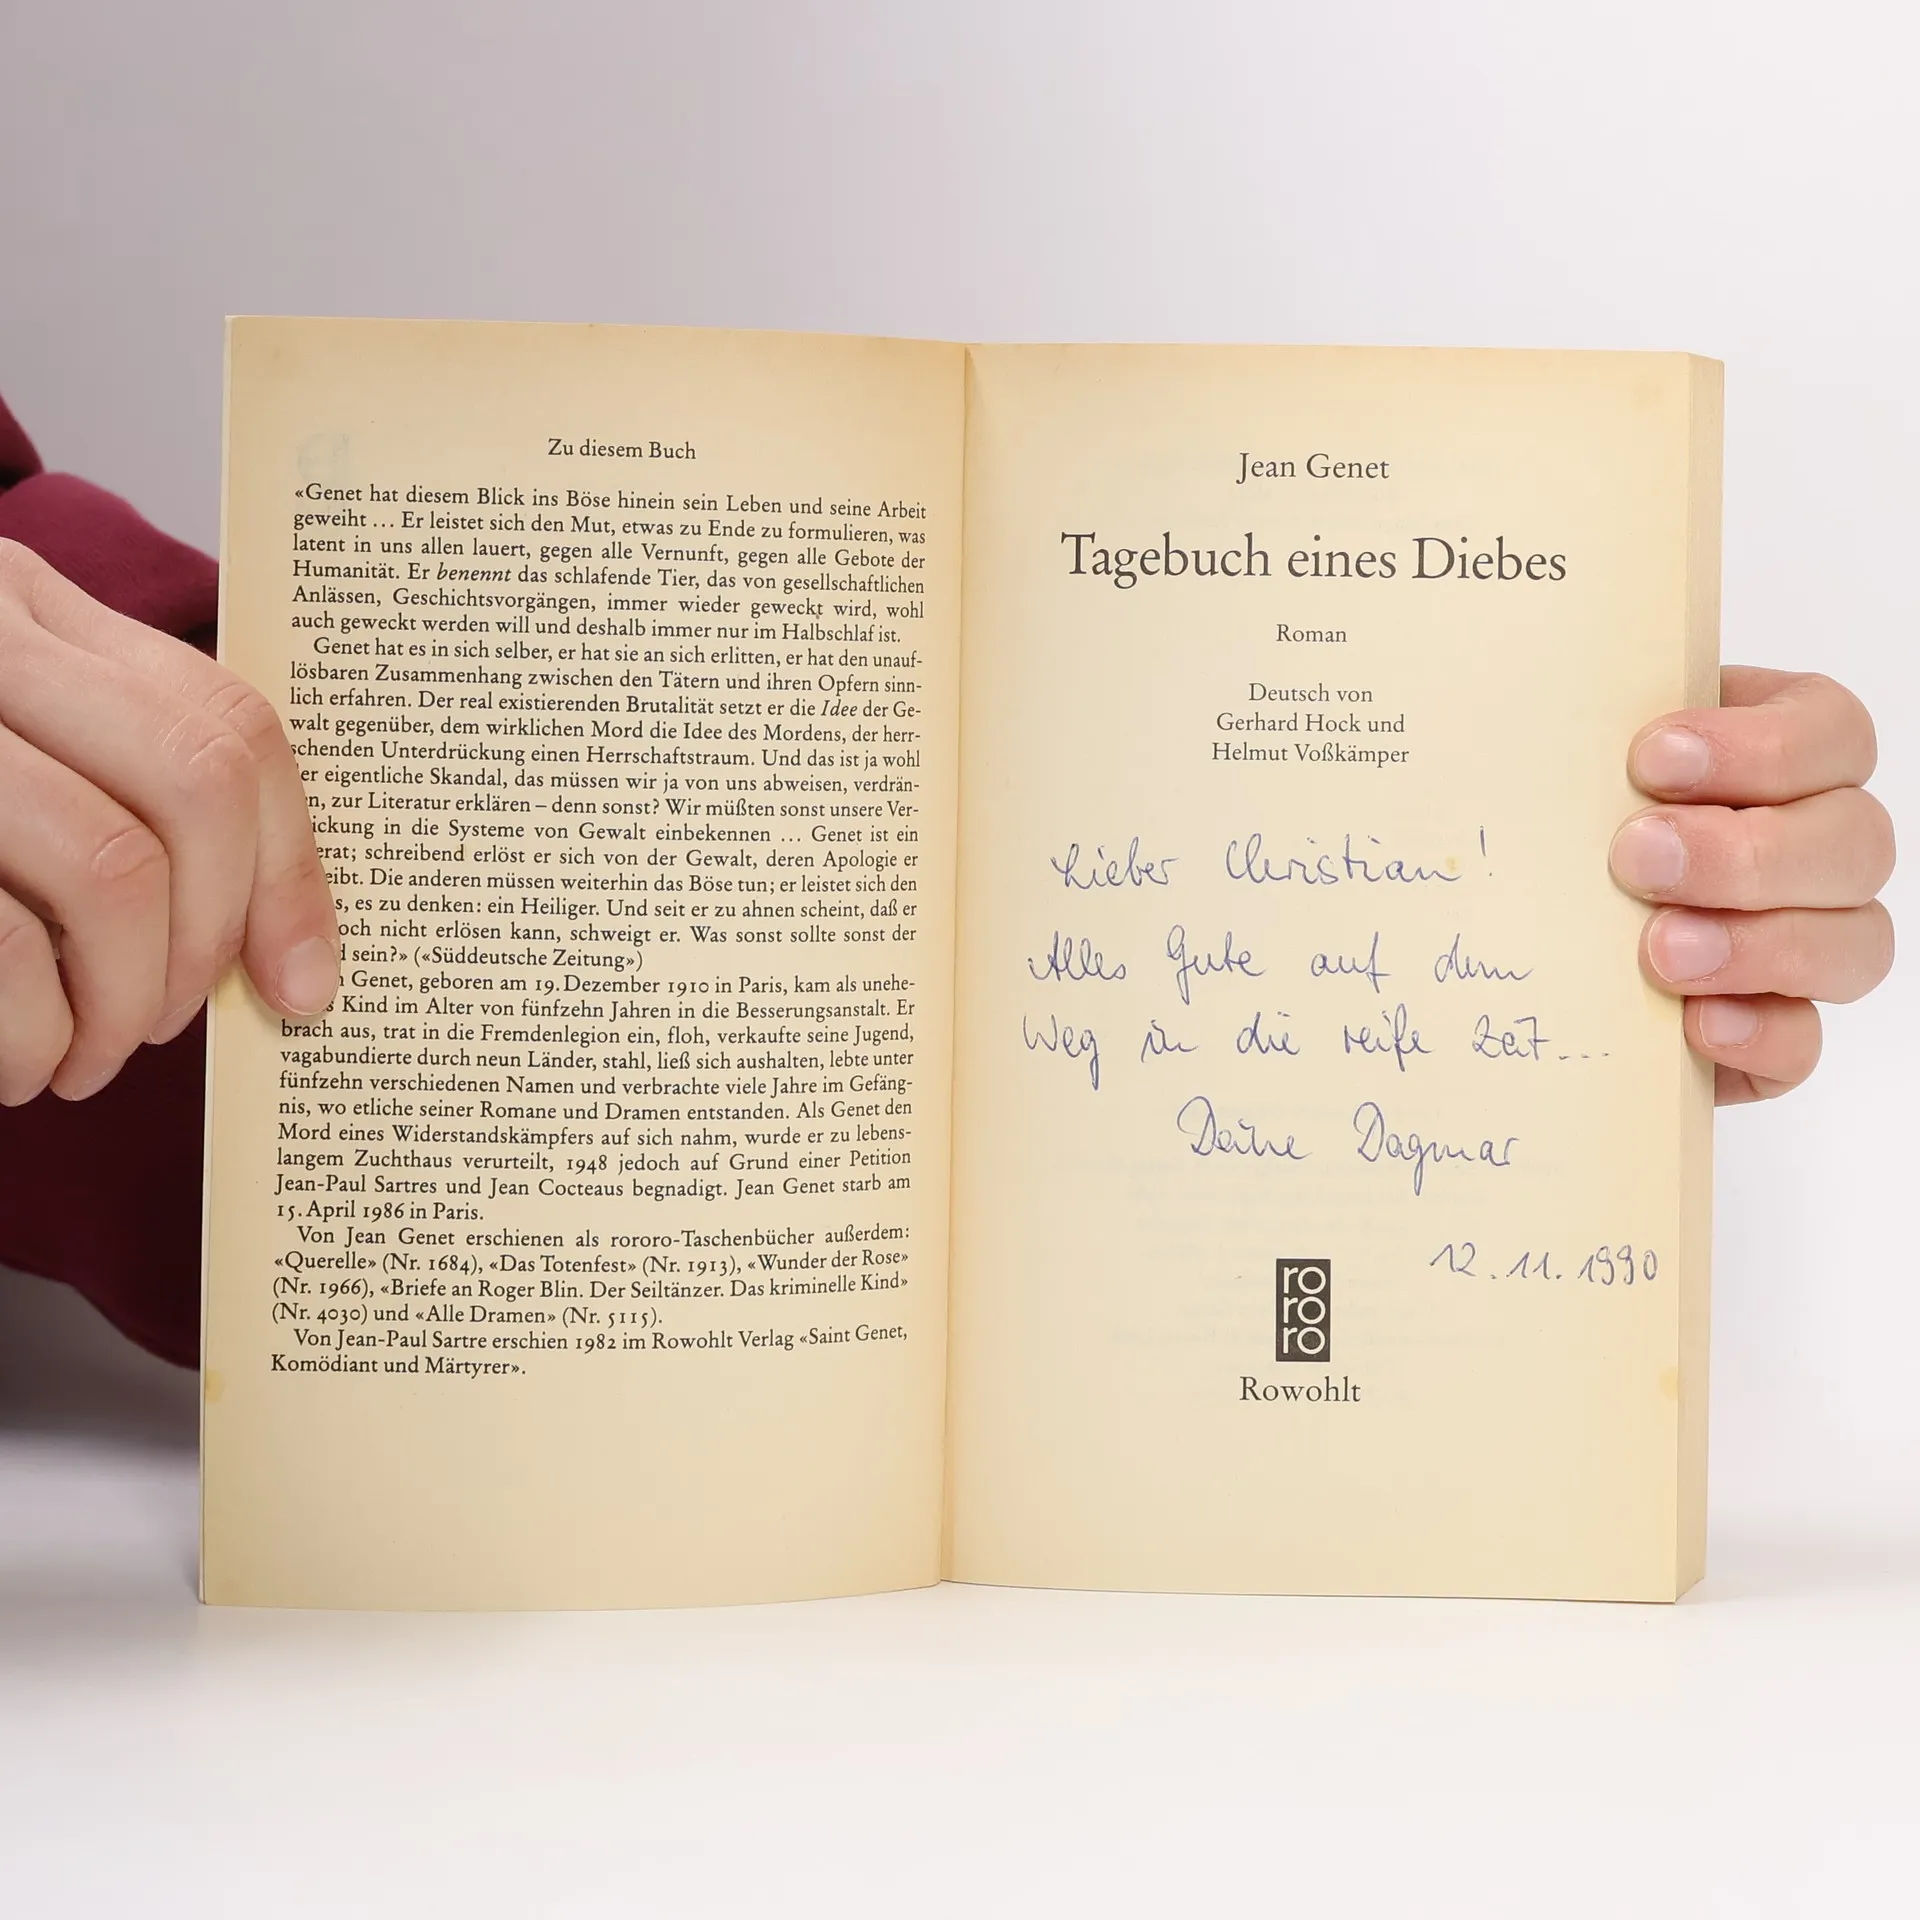 Zu diesem Buch
«Genet hat diesem Blick ins Böse hinein sein Leben und seine Arbeit
geweiht ... Er leistet sich den Mut, etwas zu Ende zu formulieren, was
latent in uns allen lauert, gegen alle Vernunft, gegen alle Gebote der
Humanität. Er benennt das schlafende Tier, das von gesellschaftlichen
Anlässen, Geschichtsvorgängen, immer wieder geweckt wird, wohl
auch geweckt werden will und deshalb immer nur im Halbschlaf ist.
Genet hat es in sich selber, er hat sie an sich erlitten, er hat den unauf-
lösbaren Zusammenhang zwischen den Tätern und ihren Opfern sinn-
lich erfahren. Der real existierenden Brutalität setzt er die Idee der Ge-
walt gegenüber, dem wirklichen Mord die Idee des Mordens, der herr-
schenden Unterdrückung einen Herrschaftstraum. Und das ist ja wohl
er eigentliche Skandal, das müssen wir ja von uns abweisen, verdrän-
n, zur Literatur erklären – denn sonst? Wir müßten sonst unsere Ver-
ickung in die Systeme von Gewalt einbekennen ... Genet ist ein
erat; schreibend erlöst er sich von der Gewalt, deren Apologie er
eibt. Die anderen müssen weiterhin das Böse tun; er leistet sich den
s, es zu denken: ein Heiliger. Und seit er zu ahnen scheint, daß er
och nicht erlösen kann, schweigt er. Was sonst sollte sonst der
sein?» («Süddeutsche Zeitung»)
Genet, geboren am 19. Dezember 1910 in Paris, kam als unehe-
s Kind im Alter von fünfzehn Jahren in die Besserungsanstalt. Er
brach aus, trat in die Fremdenlegion ein, floh, verkaufte seine Jugend,
vagabundierte durch neun Länder, stahl, ließ sich aushalten, lebte unter
fünfzehn verschiedenen Namen und verbrachte viele Jahre im Gefäng-
nis, wo etliche seiner Romane und Dramen entstanden. Als Genet den
Mord eines Widerstandskämpfers auf sich nahm, wurde er zu lebens-
langem Zuchthaus verurteilt, 1948 jedoch auf Grund einer Petition
Jean-Paul Sartres und Jean Cocteaus begnadigt. Jean Genet starb am
15. April 1986 in Paris.
Von Jean Genet erschienen als rororo-Taschenbücher außerdem:
«Querelle» (Nr. 1684), «Das Totenfest» (Nr. 1913), «Wunder der Rose»
(Nr. 1966), «Briefe an Roger Blin. Der Seiltänzer. Das kriminelle Kind»
(Nr. 4030) und «Alle Dramen» (Nr. 5115).
Von Jean-Paul Sartre erschien 1982 im Rowohlt Verlag «Saint Genet,
Komödiant und Märtyrer».
Jean Genet
Tagebuch eines Diebes
Roman
Deutsch von
Gerhard Hock und
Helmut Voßkämper
Lieber Christian!
Alles Gute auf dem
Weg in die reife Zeit...
Deine Dagmar
12.11.1990
ro
ro
ro
Rowohlt